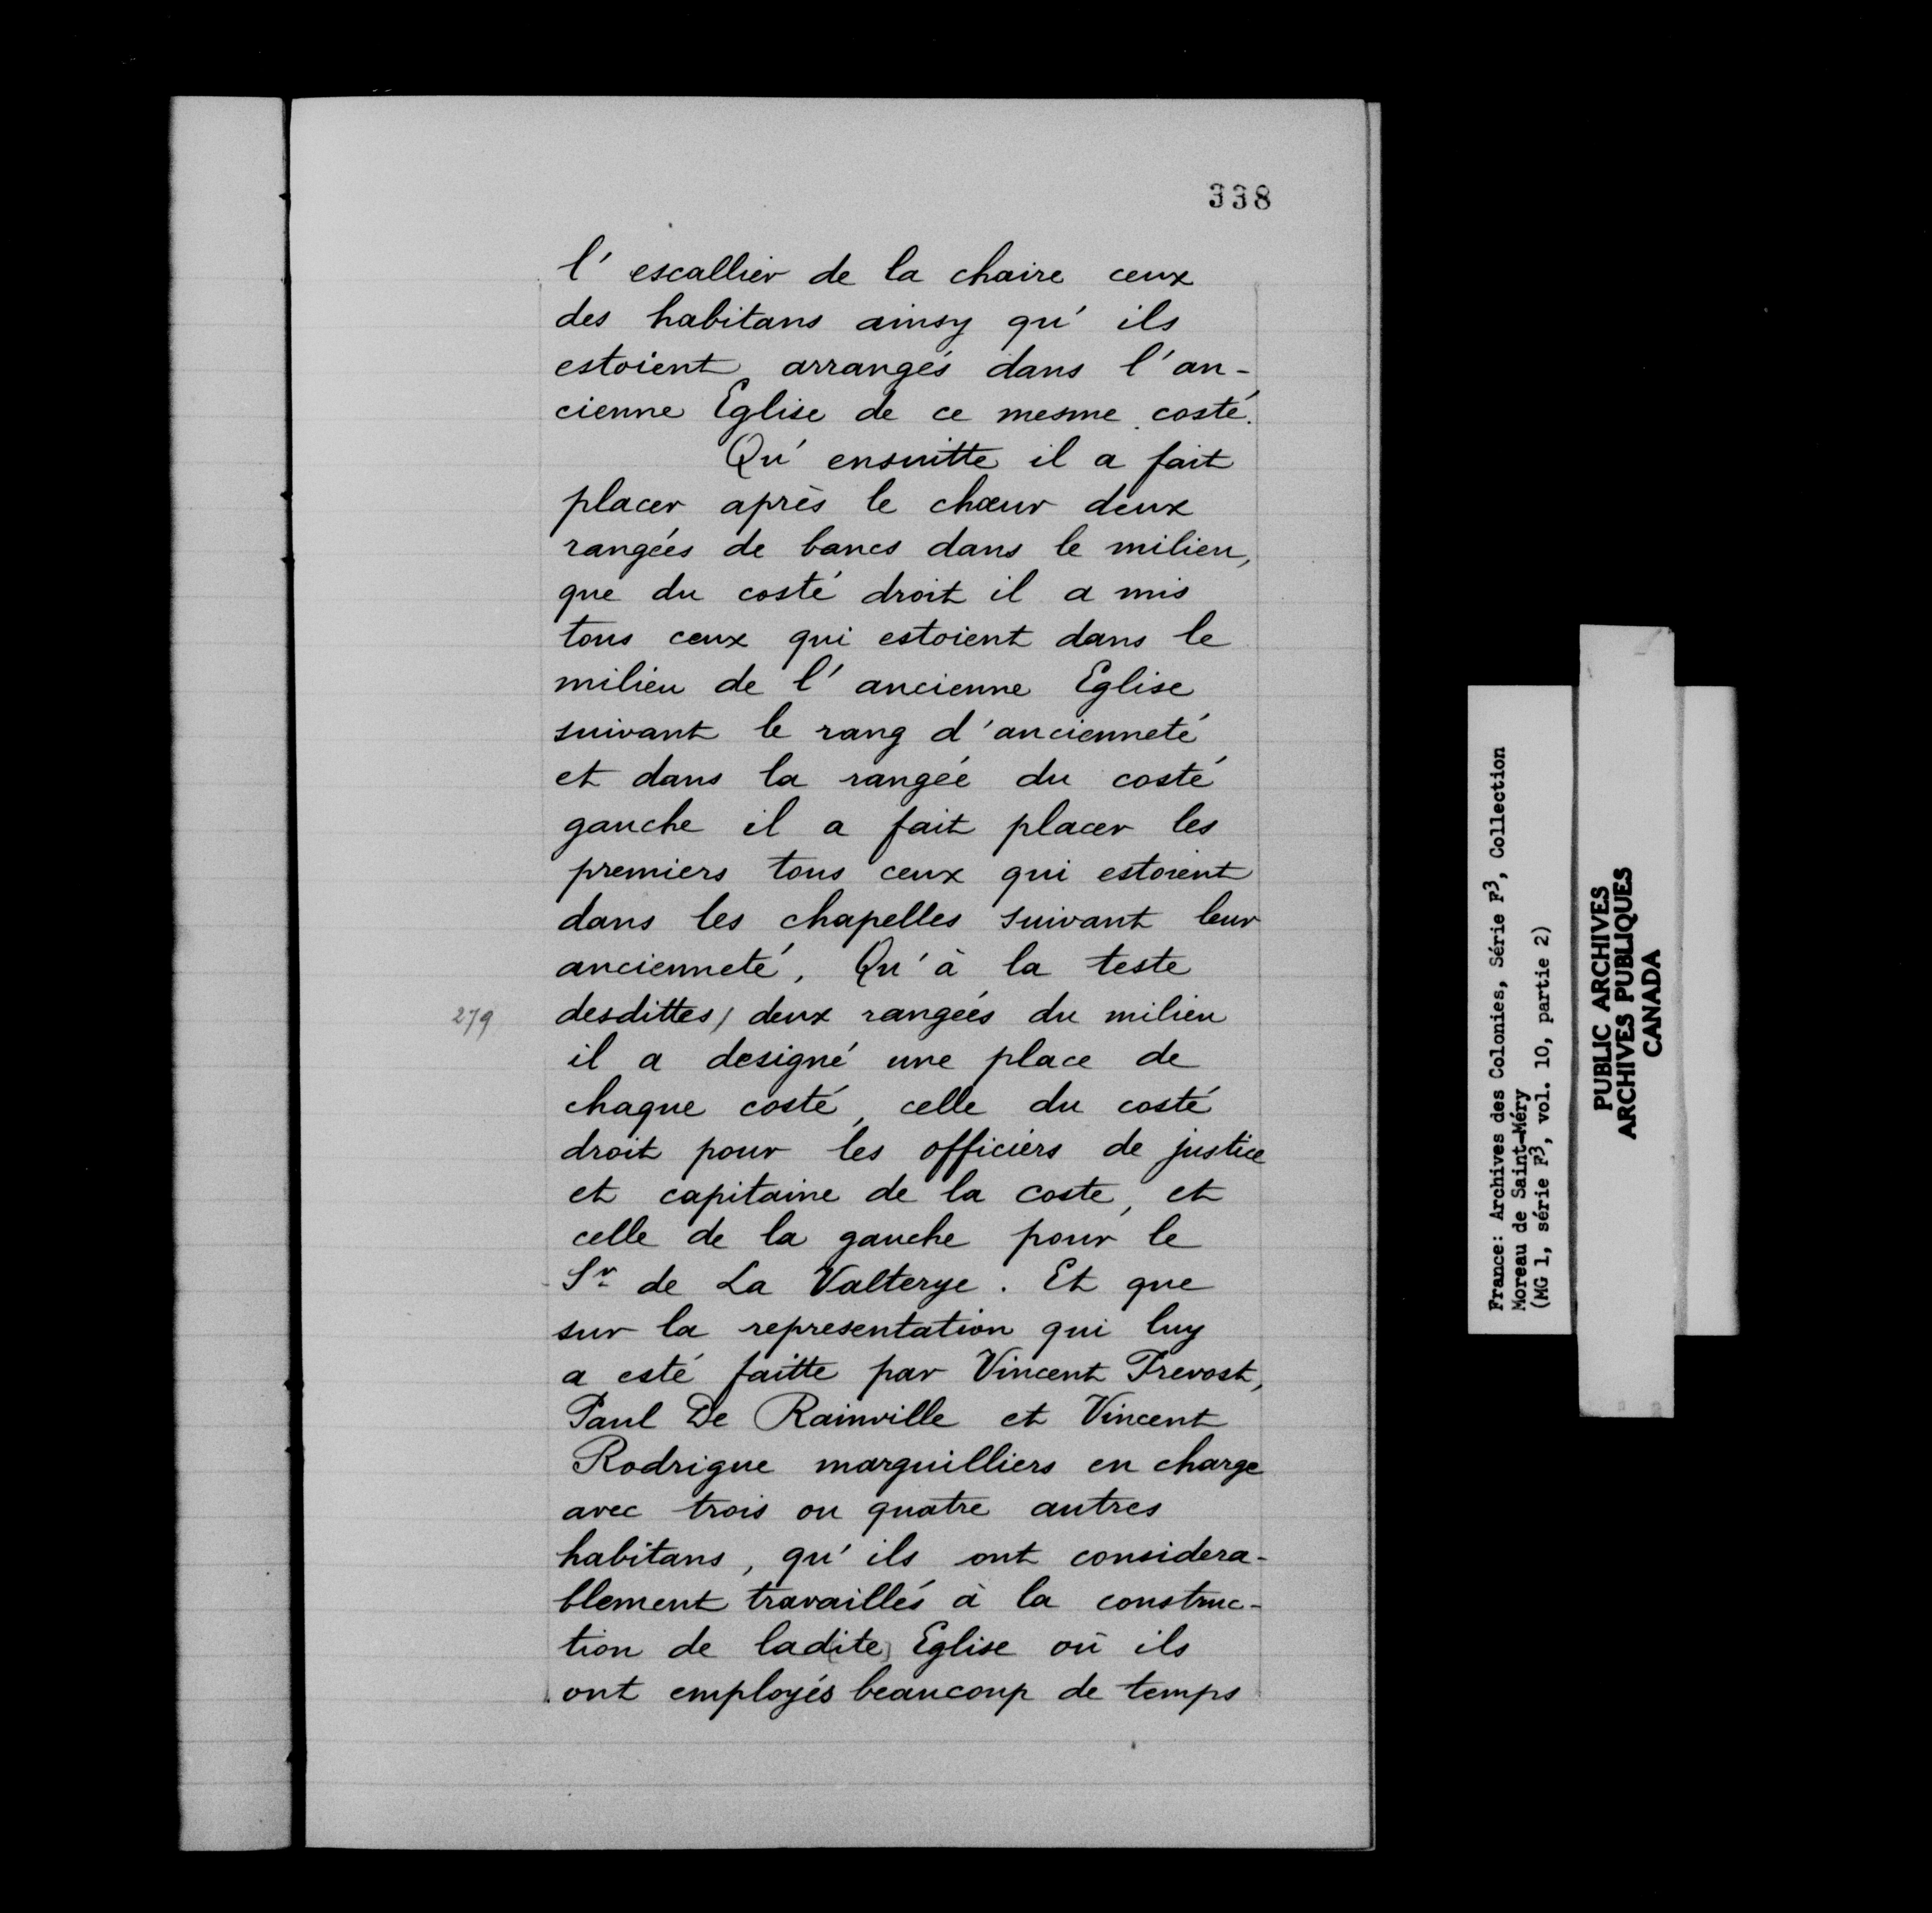 338
l' escallier de la chaire ceux
des habitans ainsy qu' ils
estoient arrangés dans l'an-
cienne Eglise de ce mesme costé.
Qu' ensuitte il a fait
placer après le chœur deux
rangées de bancs dans le milieu,
que du costé droit il a mis
tous ceux qui estoient dans le
milieu de l' ancienne Eglise
suivant le rang d'ancienneté
et dans la rangée du costé
gauche il a fait placer les
premiers tous ceux qui estoient
dans les chapelles suivant leur
ancienneté, Qu'à la teste
279 desdittes/ deux rangées du milieu
il a designé une place de
chaque costé, celle du costé
droit pour les officiers de justice
et capitaine de la coste, et
celle de la gauche pour le
Sr de La Valterye. Et que
sur la representation qui luy
a esté faitte par Vincent Prevost,
Paul De Rainville et Vincent
Rodrigue marguilliers en charge
avec trois ou quatre autres
habitans, qu' ils ont considera-
blement travaillés à la construc-
tion de lad[ite] Eglise où ils
ont employés beaucoup de temps
France: Archives des Colonies, Série F3, Collection
Moreau de Saint-Méry
(MG 1, série F3, vol. 10, partie 2)
PUBLIC ARCHIVES
ARCHIVES PUBLIQUES
CANADA